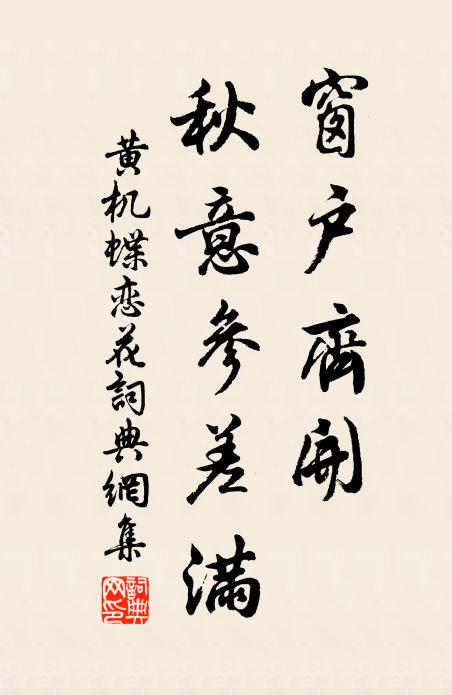 窗户齊開
秋意參差滿
黄机蝶恋花詞典網集
詞典网印